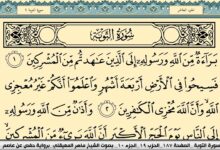 سُورَةُ التَّوْبَةِ
بَرَآءَةٌ مِّنَ ٱللَّهِ وَرَسُولِهِۦٓ إِلَى ٱلَّذِينَ عَٰهَدتُّم مِّنَ ٱلْمُشْرِكِينَ ١
فَسِيحُوا۟ فِى ٱلْأَرْضِ أَرْبَعَةَ أَشْهُرٍ وَٱعْلَمُوٓا۟ أَنَّكُمْ غَيْرُ مُعْجِزِى
ٱللَّهِ وَأَنَّ ٱللَّهَ مُخْزِى ٱلْكَٰفِرِينَ ٢ وَأَذَٰنٌ مِّنَ ٱللَّهِ وَرَسُولِهِۦٓ
إِلَى ٱلنَّاسِ يَوْمَ ٱلْحَجِّ ٱلْأَكْبَرِ أَنَّ ٱللَّهَ بَرِىٓءٌ مِّنَ ٱلْمُشْرِكِينَ
سورة التوبة .الصفحة ١٨٧ .الحزب ١٩ .الجزء ١٠ .بصوت الشيخ ماهر المعيقلي .برواية حفص عن عاصم